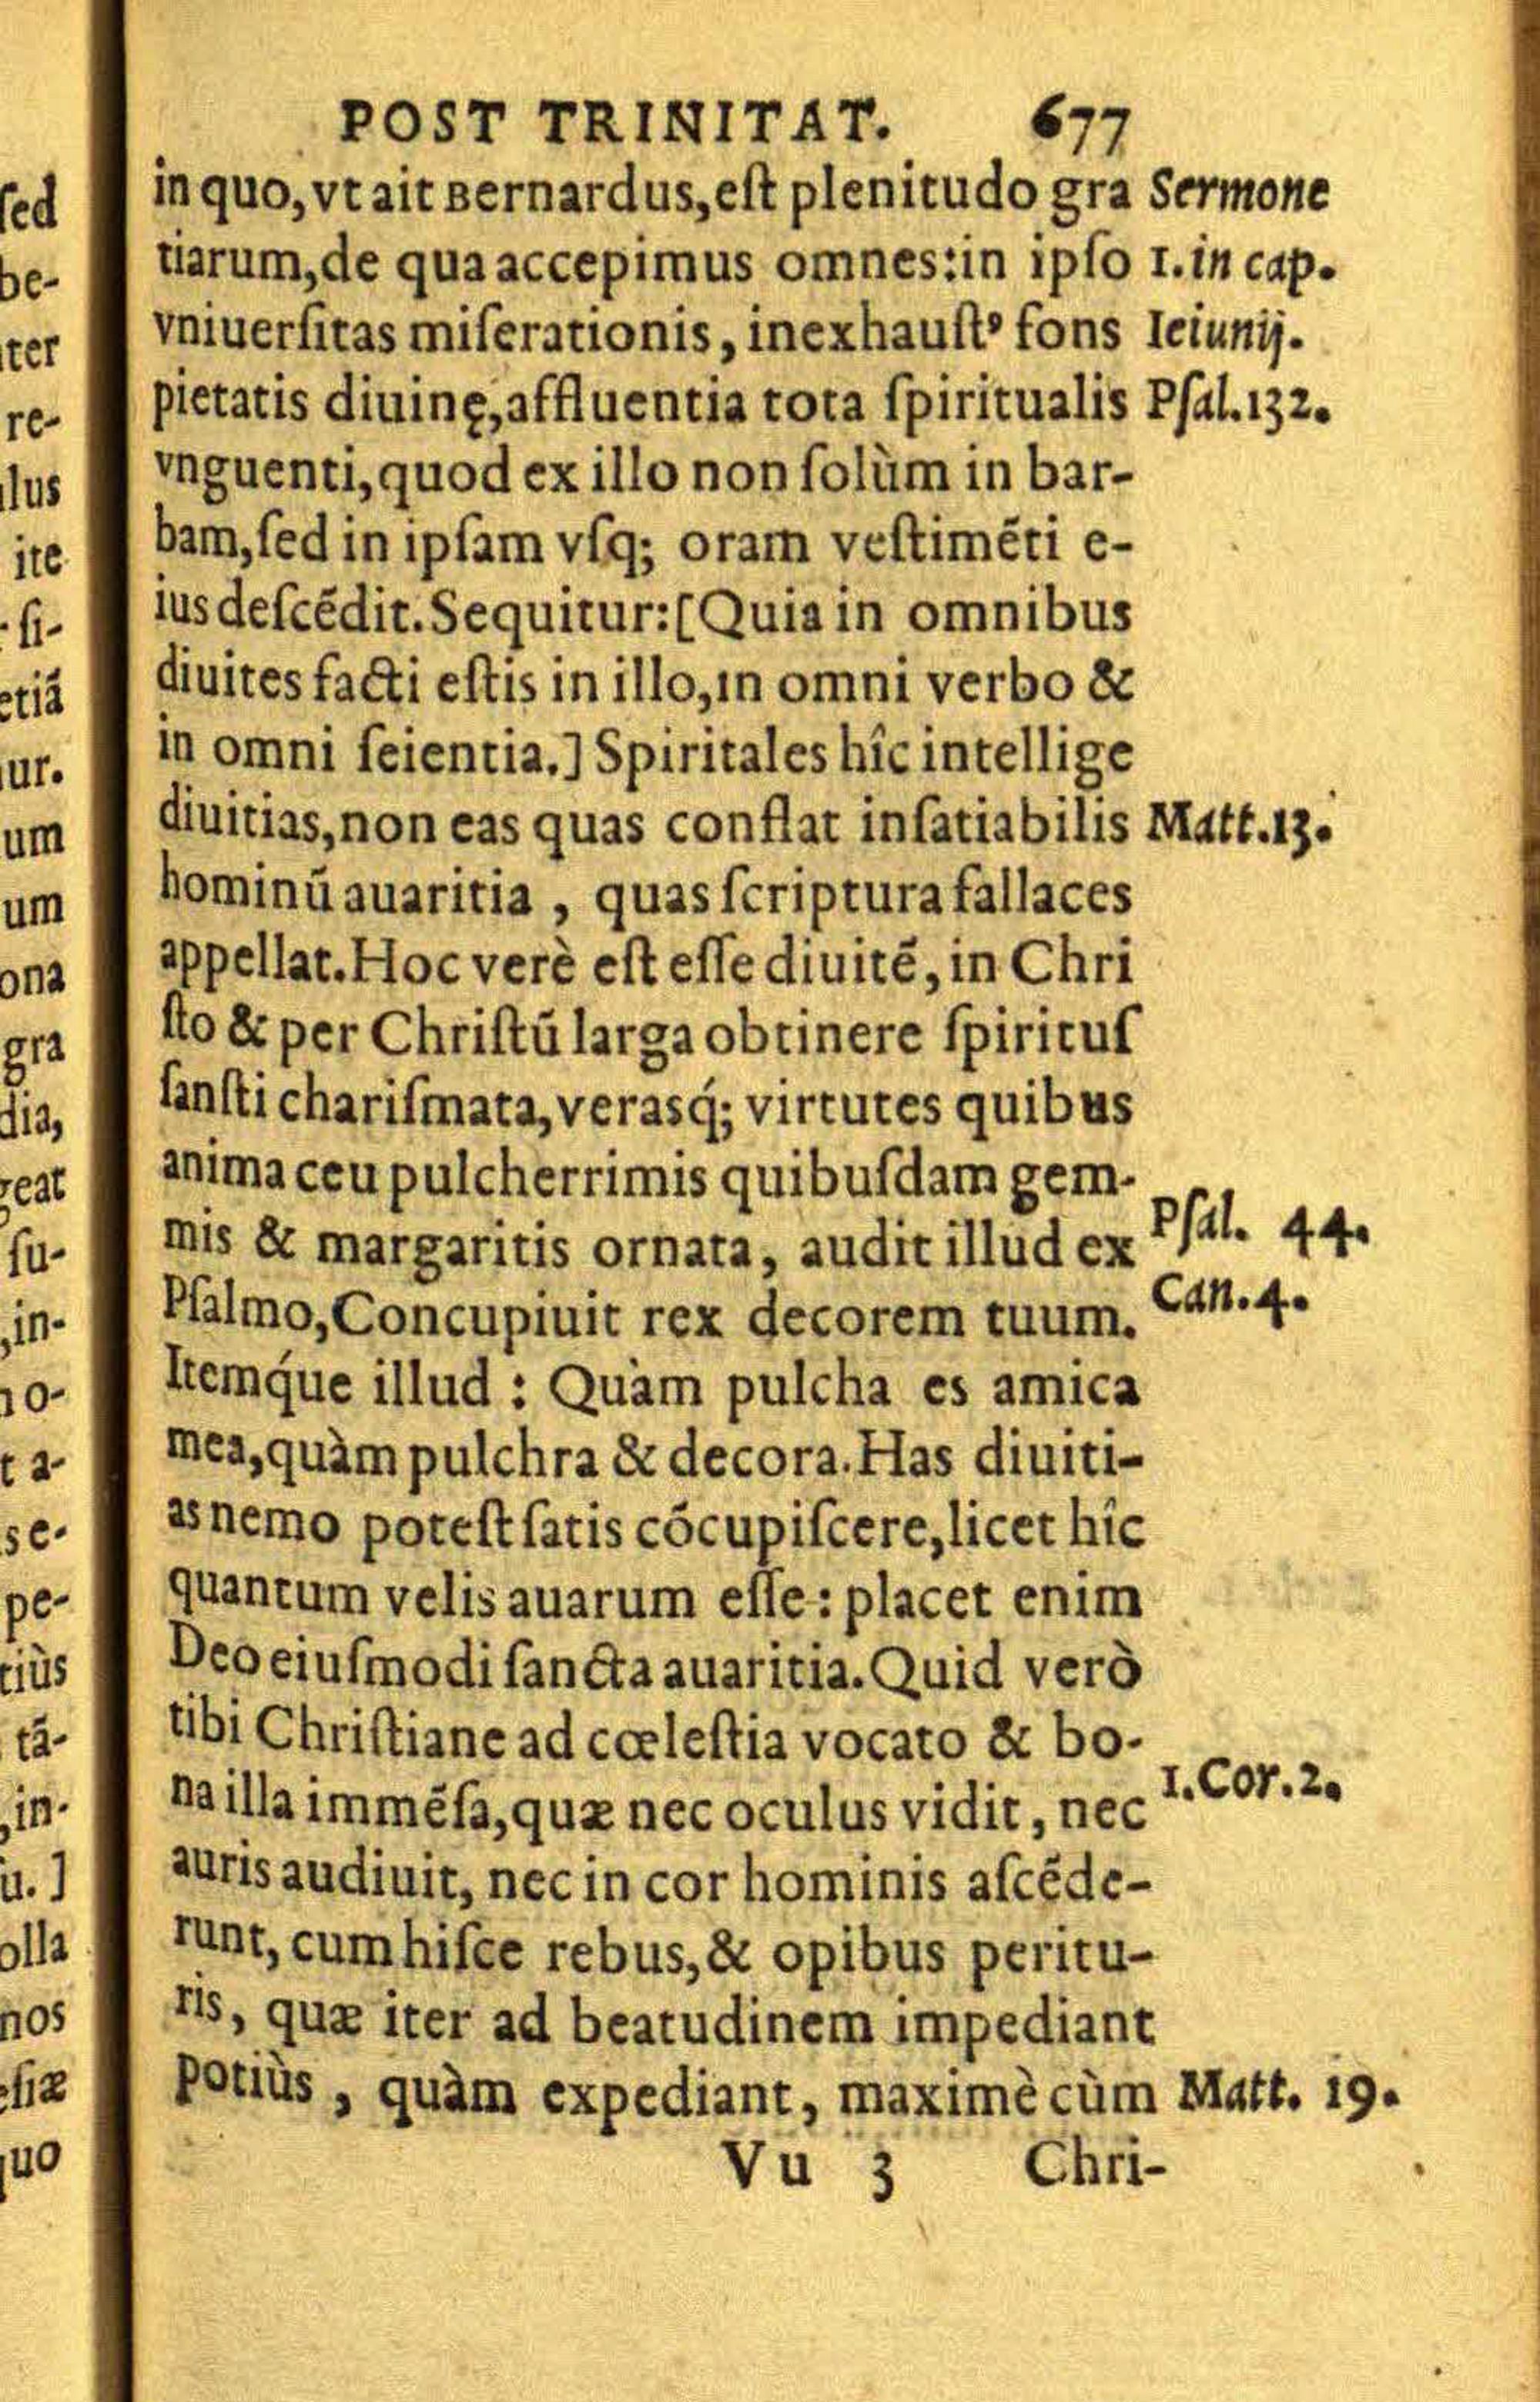 POST TRINITAT. 677
in quo, vt ait Bernardus, eſt plenitudo gra
tiarum, de qua accepimus omnes: in ipſo
vniuerſitas miſerationis, inexhauſtꝰ fons
pietatis diuinę, affluentia tota ſpiritualis
vnguenti, quod ex illo non ſolùm in bar-
bam, ſed in ipſam vſq; oram veſtimẽti e-
ius deſcẽdit. Sequitur: [Quia in omnibus
diuites facti eſtis in illo, in omni verbo &
in omni ſeientia.] Spiritales hîc intellige
diuitias, non eas quas conflat inſatiabilis
hominũ auaritia, quas ſcriptura fallaces
appellat. Hoc verè eſt eſſe diuitẽ, in Chri
ſto & per Chriſtũ larga obtinere ſpirituſ
ſanſti chariſmata, verasq́; virtutes quibus
anima ceu pulcherrimis quibuſdam gem-
mis & margaritis ornata, audit illud ex
Pſalmo, Concupiuit rex decorem tuum.
Itemq́ue illud: Quàm pulcha es amica
mea, quàm pulchra & decora. Has diuiti-
as nemo poteſt ſatis cõcupiſcere, licet hîc
quantum velis auarum eſſe: placet enim
Deo eiuſmodi ſancta auaritia. Quid verò
tibi Chriſtiane ad cœleſtia vocato & bo-
na illa immẽſa, quæ nec oculus vidit, nec
auris audiuit, nec in cor hominis aſcẽde-
runt, cum hiſce rebus, & opibus peritu-
ris, quæ iter ad beatudinem impediant
potiùs, quàm expediant, maximè cùm
Vu 3 Chri-
Sermone
1. in cap.
Ieiunij.
Pſal. 132.
Matt. 13.
Pſal. 44.
Can. 4.
1. Cor. 2.
Matt. 19.
ſed
be-
ter
re-
lus
ite
ſi-
etiã
ur.
um
um
ona
gra
dia,
eat
ſu-
in-
o-
t a-
se-
pe-
tiùs
tã-
in-
u. ]
olla
nos
ſiæ
uo